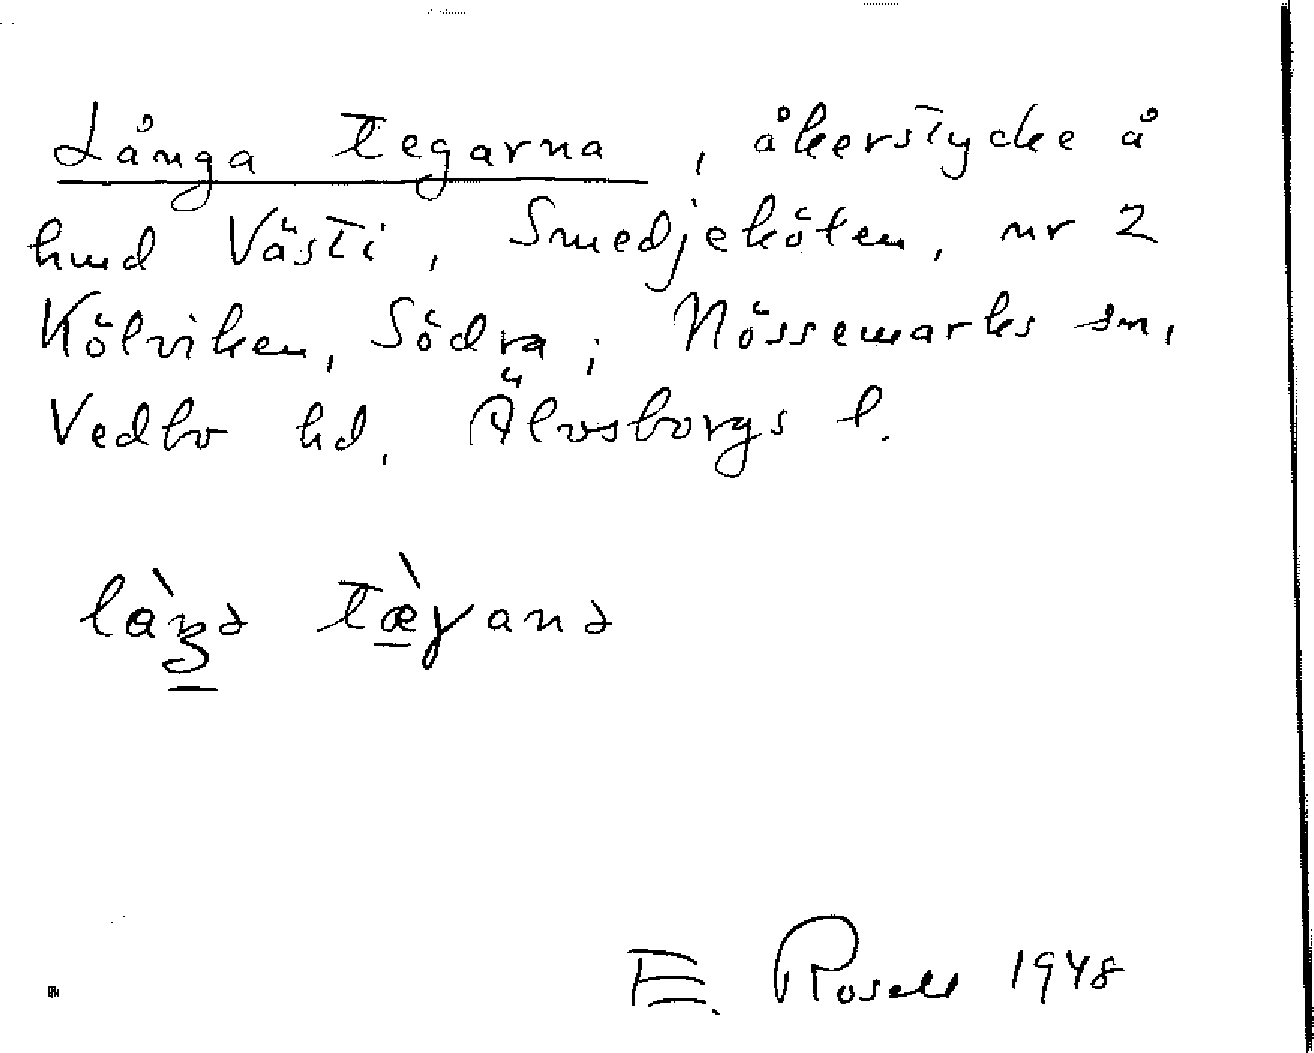 Långa tegarna, åkerstycke å
hmd Västi, Smedjekôten, nr 2
Kölviken, Södra; Nössemarks sn,
Vedbo hd, Älvsborgs l.
E. Rosell 1948